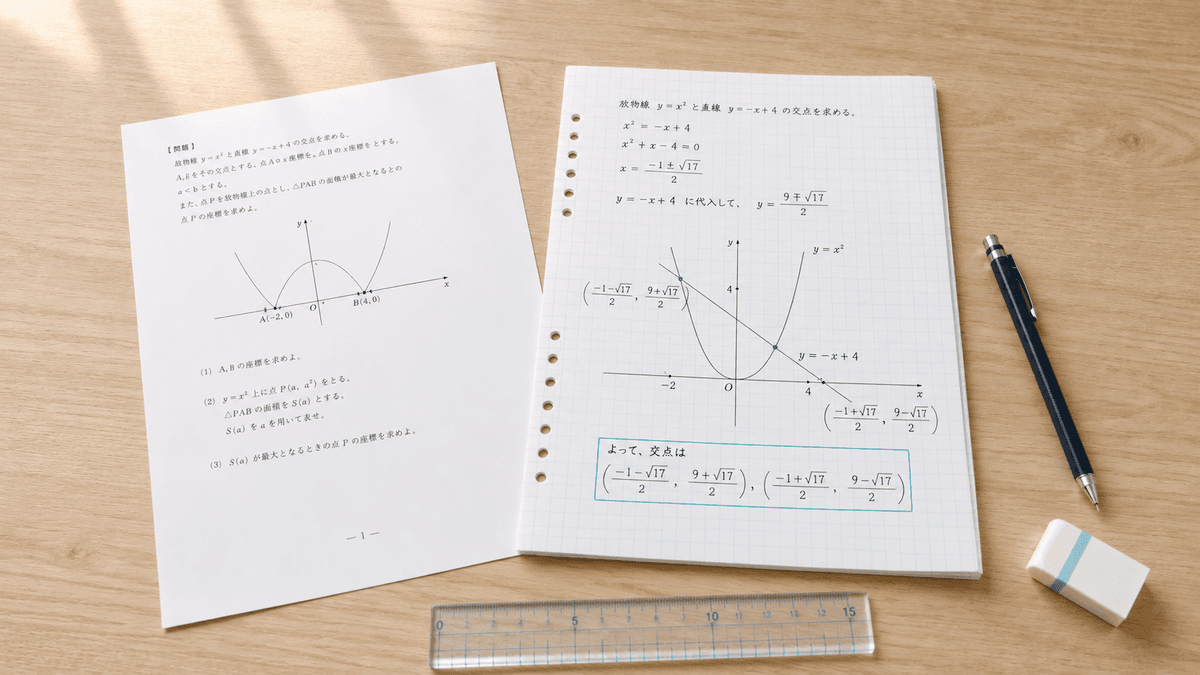 【問題】
放物線 y=x² と直線 y=−x+4 の交点を求める。
をその交点とする、点A x座標を 点Bのx座標をとする。
a<bとする。
また、点Pを放物線上の点とし、△PABの面積が最大となるとの
点Pの座標を求めよ。
y
x
O
A(-2,0)
B(4,0)
(1) A,Bの座標を求めよ。
(2) y=x² 上に点 P(a, a²) をとる。
△PABの面積を S(a) とする。
S(a) を a を用いて表せ。
(3) S(a) が最大となるときの点 P の座標を求めよ。
— 1 —
放物線 y=x² と直線 y=−x+4 の交点を求める。
x² = −x+4
x²+x−4=0
x = (−1±√17)/2
y=−x+4 に代入して、 y = (9∓√17)/2
y
y=x²
((−1−√17)/2, (9+√17)/2)
4
y=−x+4
−2
O
4
x
((−1+√17)/2, (9−√17)/2)
よって、交点は
((−1−√17)/2, (9+√17)/2), ((−1+√17)/2, (9−√17)/2)
0 5 10 15